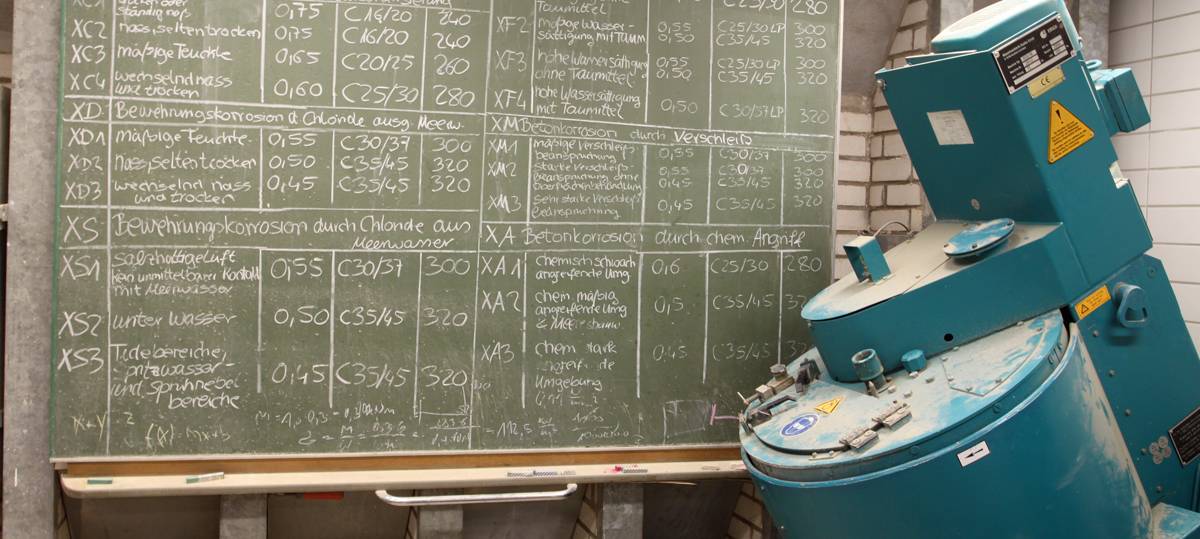 XC1 trocken oder
ständig naß 0,75 C16/20 240
XC2 nass, selten trocken 0,75 C16/20 240
XC3 mäßige Feuchte 0,65 C20/25 260
XC4 wechselnd nass
und trocken 0,60 C25/30 280
XD Bewehrungskorrosion d. Chloride ausg. Meerw.
XD1 mäßige Feuchte 0,55 C30/37 300
XD2 nass, selten trocken 0,50 C35/45 320
XD3 wechselnd nass
und trocken 0,45 C35/45 320
XS Bewehrungskorrosion durch Chloride aus
Meerwasser
XS1 Salzhaltige Luft 0,55 C30/37 300
kein unmittelbarer Kontakt
mit Meerwasser
XS2 unter Wasser 0,50 C35/45 320
XS3 Tidebereiche,
Spritzwasser-
und Sprühnebel 0,45 C35/45 320
bereiche
x+y
f(x)=mx+b
Taumittel C25/30 280
XF2 mäßige Wasser- 0,55 C25/30 LP 300
sättigung mit Taum 0,50 C35/45 320
XF3 hohe Wassersättigung 0,55 C25/30 LP 300
ohne Taumittel 0,50 C35/45 320
XF4 hohe Wassersättigung
mit Taumittel 0,50 C30/37 LP 320
XM Betonkorrosion durch Verschleiß
XM1 mäßige Verschleiß 0,55 C30/37 300
beanspruchung
XM2 starke Verschleiß- 0,55 C30/37 300
beanspruchung ohne 0,45 C35/45 320
Oberflächenbehandlung
XM3 Sehr starke Verschleiß 0,45 C35/45 320
Beanspruchung
XA Betonkorrosion durch chem. Angriff
XA1 chemisch schwach 0,6 C25/30 280
angreifende Umg
XA2 chem. mäßig 0,5 C35/45 32
angreifende Umg
& Meeresbauw
XA3 chem stark 0,45 C35/45 32
Umgebung
CE